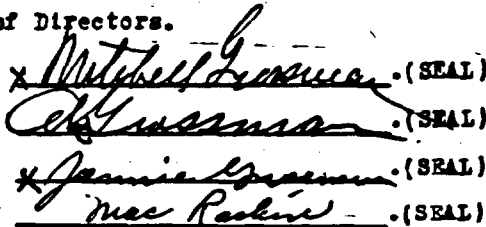 of Directors.
x Mitchell Grossman .(SEAL)
Grossman .(SEAL)
x Jennie Grossman .(SEAL)
Mac Raskin .(SEAL)